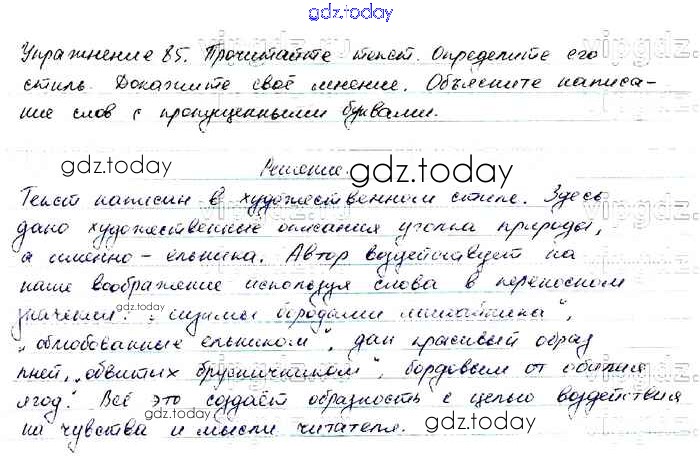 gdz.today
Упражнение 85. Прочитайте текст. Определите его
стиль. Докажите своё мнение. Объясните написа-
ние слов с пропущенными буквами.
gdz.today
Решение.
gdz.today
Текст написан в художественном стиле. Здесь
дано художественные описания уголка природы,
а именно – ельника. Автор воздействует на
наше воображение используя слова в переносном
значении: "
gdz.today
"облюбованные ельником", дан красивый образ
пней, "обвитых брусничником", бордовым от обилия
ягод. Всё это создаёт образность с целью воздействия
gdz.today
gdz.today
на чувства и мысли читателя.